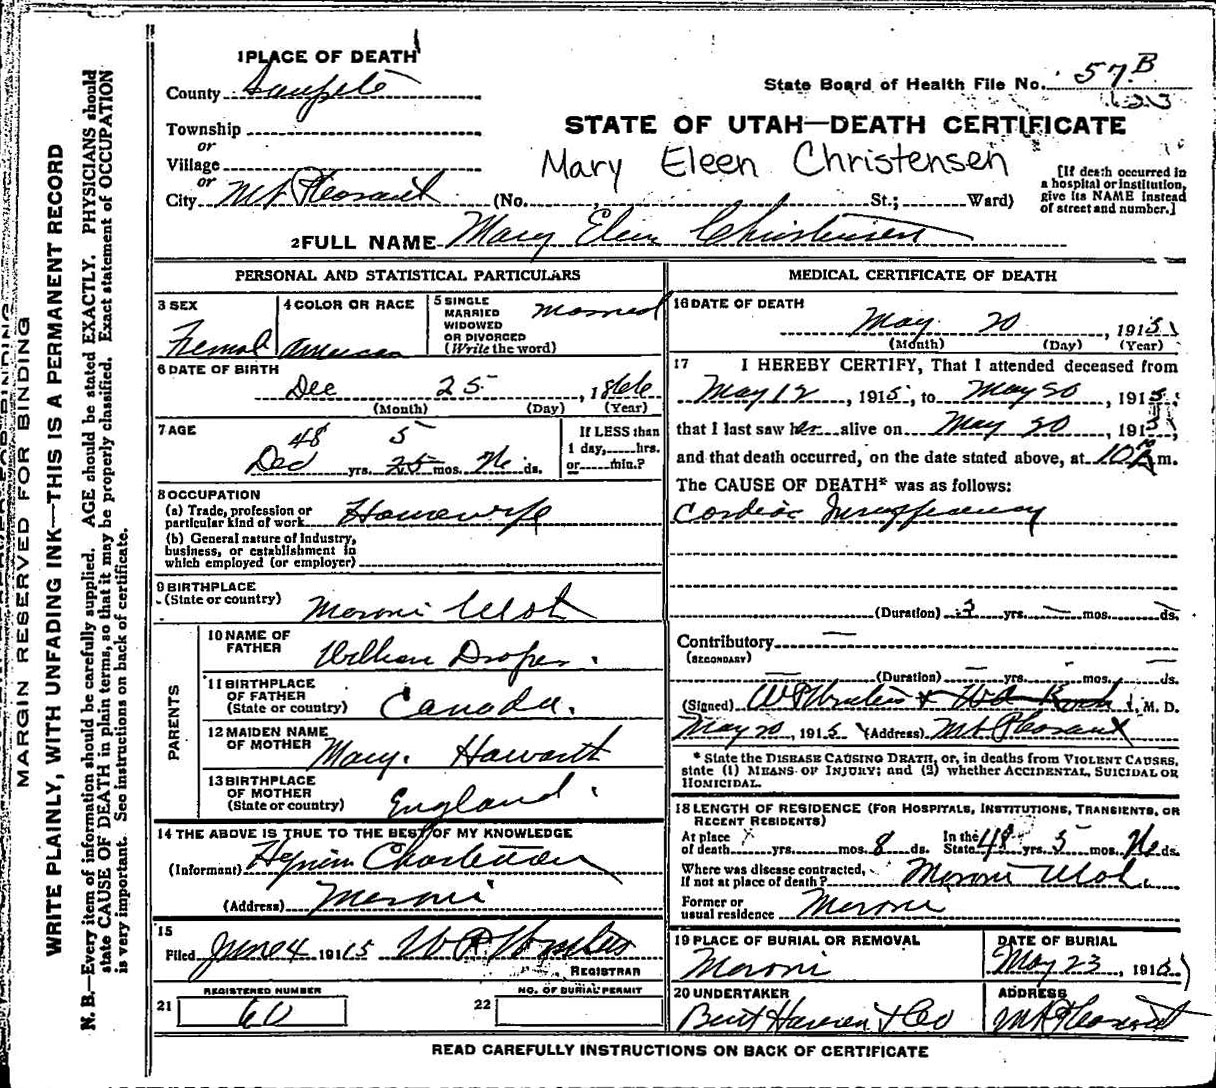 MARGIN RESERVED FOR BINDING
WRITE PLAINLY, WITH UNFADING INK—THIS IS A PERMANENT RECORD
N. B.—Every item of information should be carefully supplied. AGE should be stated EXACTLY. PHYSICIANS should
state CAUSE OF DEATH in plain terms, so that it may be properly classified. Exact statement of OCCUPATION
is very important. See instructions on back of certificate.
1 PLACE OF DEATH
County Sanpete
Township
or
Village
or
City Mt Pleasant
State Board of Health File No. 57 B
STATE OF UTAH—DEATH CERTIFICATE
Mary Eleen Christensen
(No. St.; Ward)
[If death occurred in
a hospital or institution,
give its NAME instead
of street and number.]
2 FULL NAME Mary Eleen Christensen
PERSONAL AND STATISTICAL PARTICULARS
3 SEX Femal
4 COLOR OR RACE American
5 SINGLE
MARRIED
WIDOWED
OR DIVORCED
(Write the word)
Married
6 DATE OF BIRTH
Dec 25, 1866
(Month) (Day) (Year)
7 AGE
48 5
Dec yrs. 25 mos. No ds.
If LESS than
1 day, hrs.
or min.?
8 OCCUPATION
(a) Trade, profession or
particular kind of work Housewife
(b) General nature of industry,
business, or establishment in
which employed (or employer)
9 BIRTHPLACE
(State or country) Moroni Utah
PARENTS
10 NAME OF
FATHER William Draper.
11 BIRTHPLACE
OF FATHER
(State or country) Canada.
12 MAIDEN NAME
OF MOTHER Mary. Haworth
13 BIRTHPLACE
OF MOTHER
(State or country) England.
14 THE ABOVE IS TRUE TO THE BEST OF MY KNOWLEDGE
(Informant)
(Address) Moroni
15
Filed June 4 1915
REGISTRAR
21 REGISTERED NUMBER
60
22 NO. OF BURIAL PERMIT
MEDICAL CERTIFICATE OF DEATH
16 DATE OF DEATH
May 20, 1915
(Month) (Day) (Year)
17 I HEREBY CERTIFY, That I attended deceased from
May 12, 1915, to May 20, 1915,
that I last saw her alive on May 20, 1915,
and that death occurred, on the date stated above, at 10 m.
The CAUSE OF DEATH* was as follows:
Cardiac Insufficiency
(Duration) 3 yrs. — mos. — ds.
Contributory —
(SECONDARY)
(Duration) — yrs. — mos. — ds.
(Signed) M. D.
May 20, 1915 (Address) Mt Pleasant
* State the DISEASE CAUSING DEATH, or, in deaths from VIOLENT CAUSES,
state (1) MEANS OF INJURY; and (2) whether ACCIDENTAL, SUICIDAL OR
HOMICIDAL.
18 LENGTH OF RESIDENCE (FOR HOSPITALS, INSTITUTIONS, TRANSIENTS, OR
RECENT RESIDENTS)
At place
of death yrs. mos. 8 ds.
In the
State 48 yrs. 5 mos. No ds.
Where was disease contracted,
if not at place of death? Moroni Utah.
Former or
usual residence Moroni
19 PLACE OF BURIAL OR REMOVAL
Moroni
DATE OF BURIAL
May 23, 1915
20 UNDERTAKER
ADDRESS
Mt Pleasant
READ CAREFULLY INSTRUCTIONS ON BACK OF CERTIFICATE